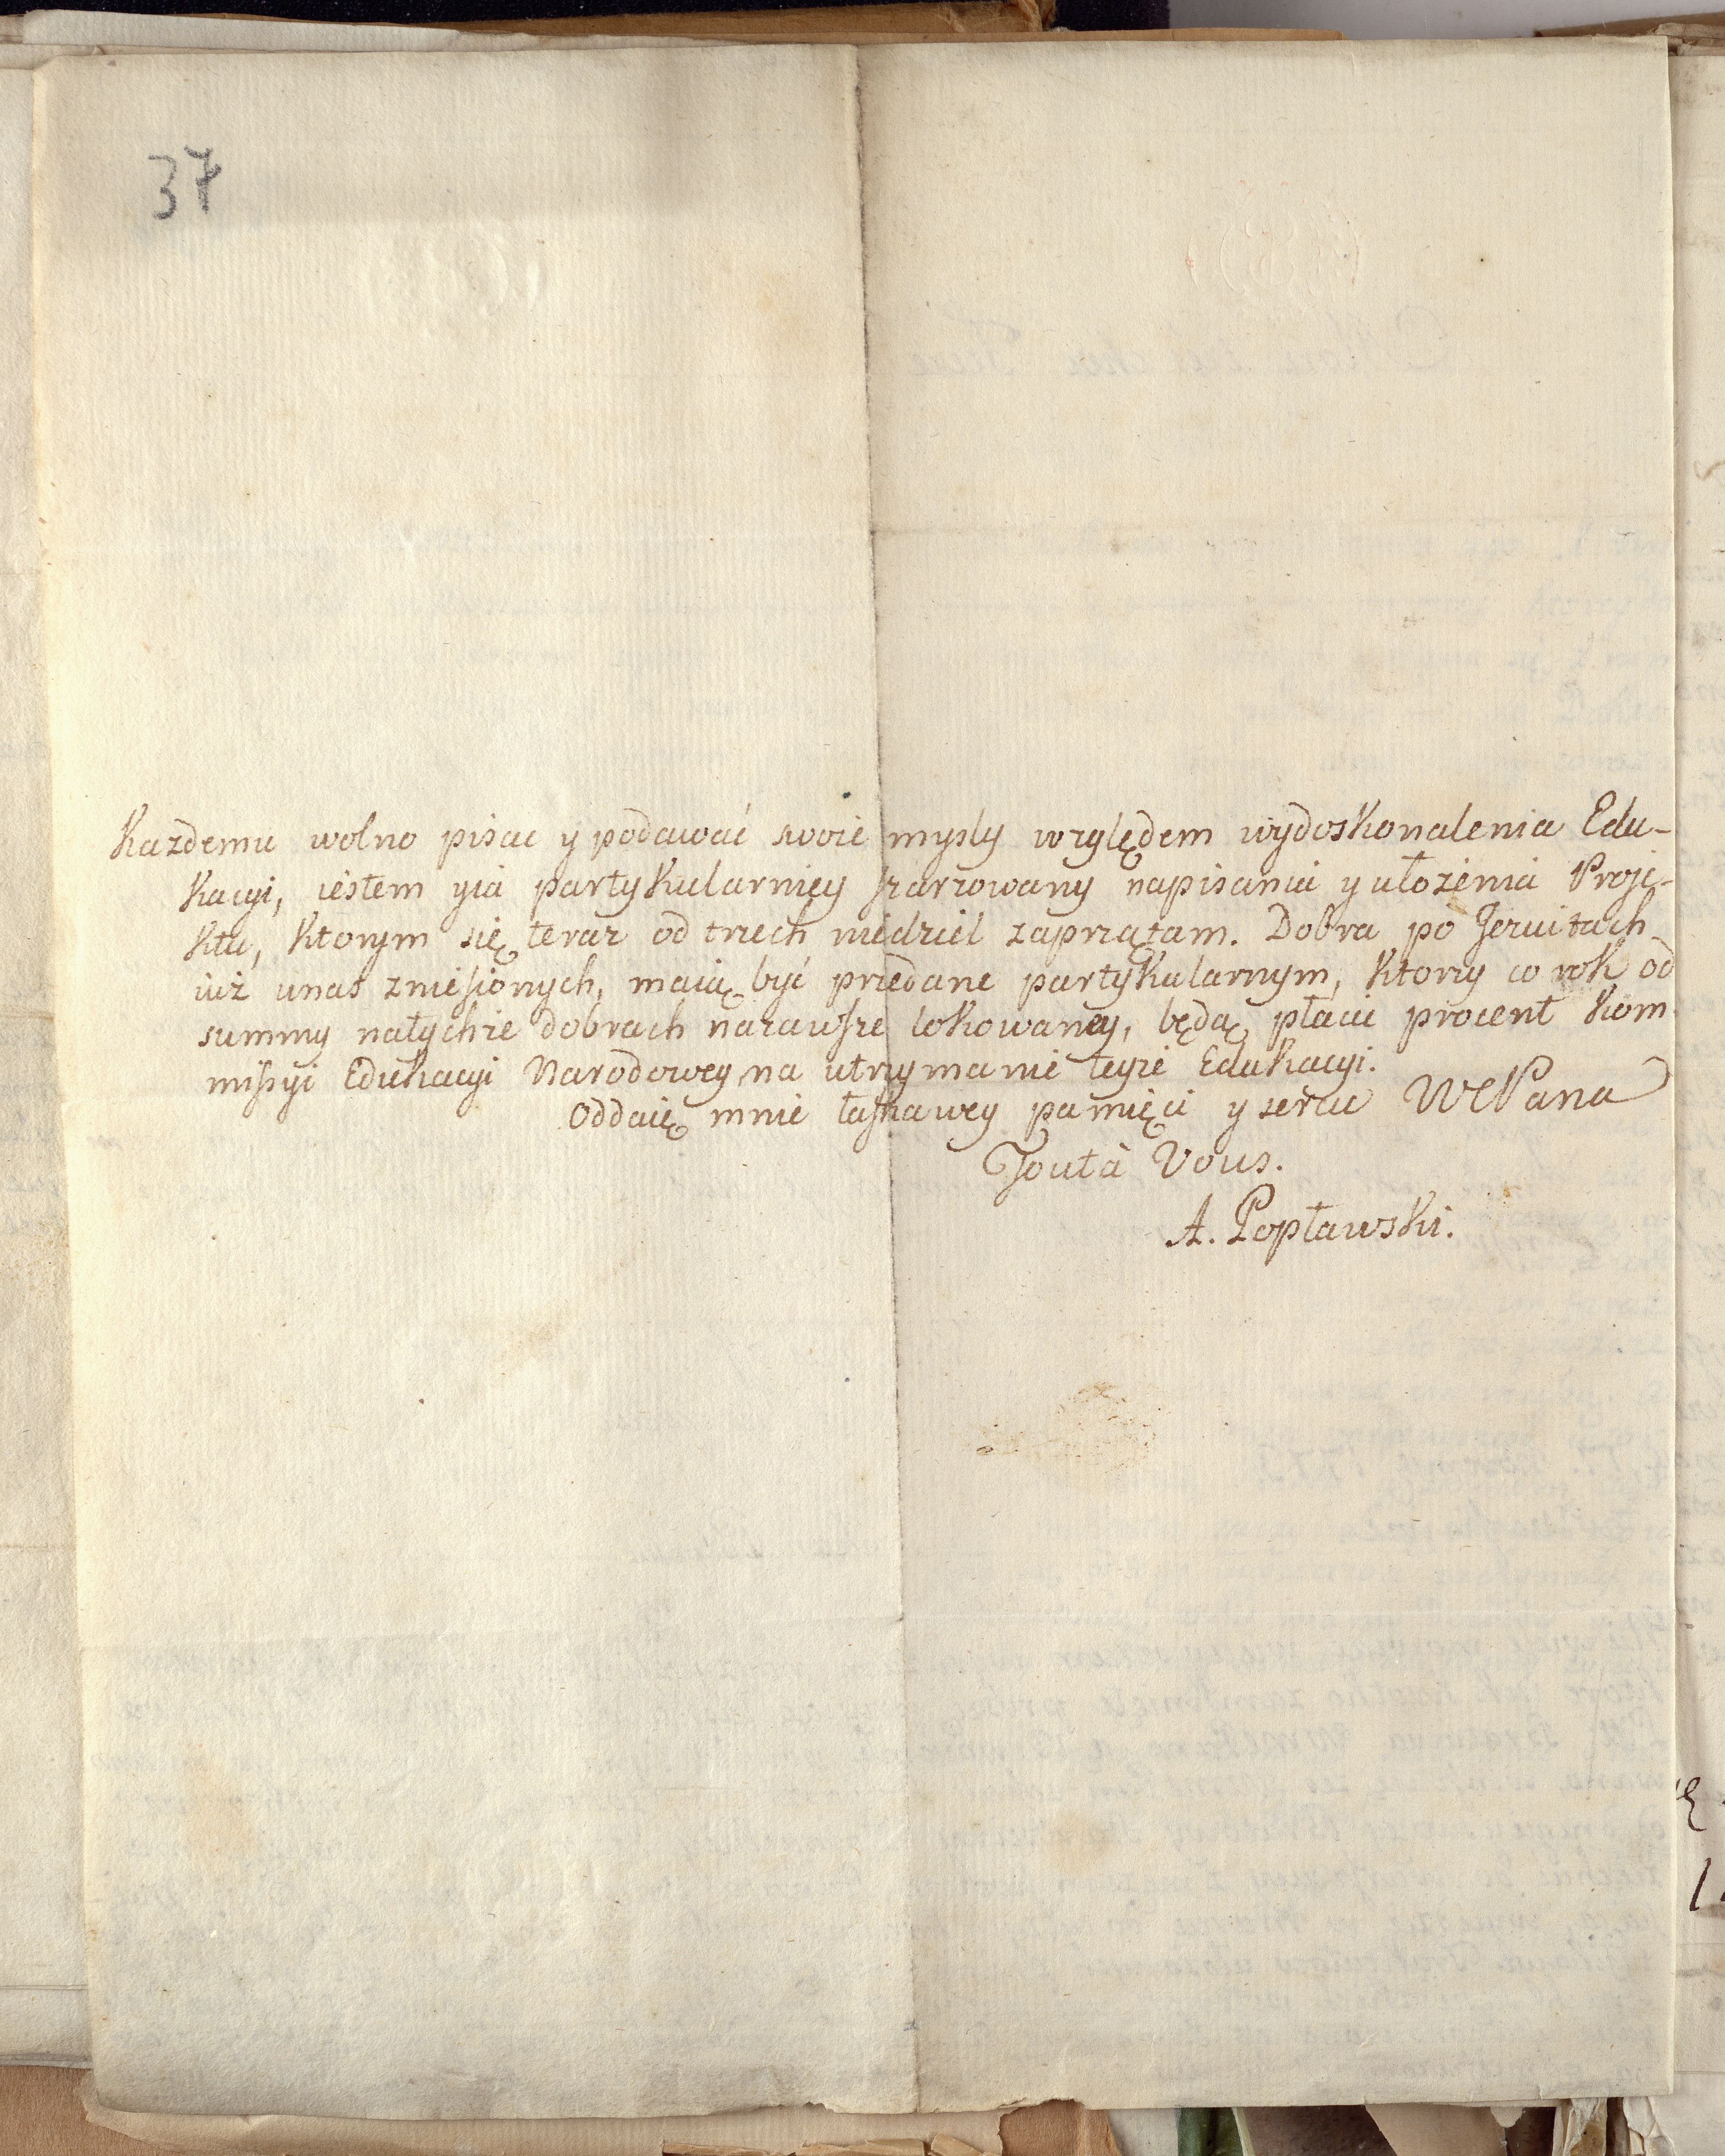 37
Każdemu wolno pisac y podawać swoie mysly względem wydoskonalenia Edu-
kacyi, iestem y ia partykularniey szarzowany napisania y ułożenia Proje-
ktu, ktorym się teraz od trzech niedziel zaprzątam. Dobra po Jezuitach
iuż unas zniesionych, maią być przedane partykularnym, ktorzy co rok od
summy natychże dobrach nazawsze lokowaney, będą płacic procent Kom-
missyi Edukacyi Narodowey na utrzymanie teyże Edukacyi.
Oddaię mnie łaskawey pamięci y sercu WPana
Tout à Vous.
A. Popławski.